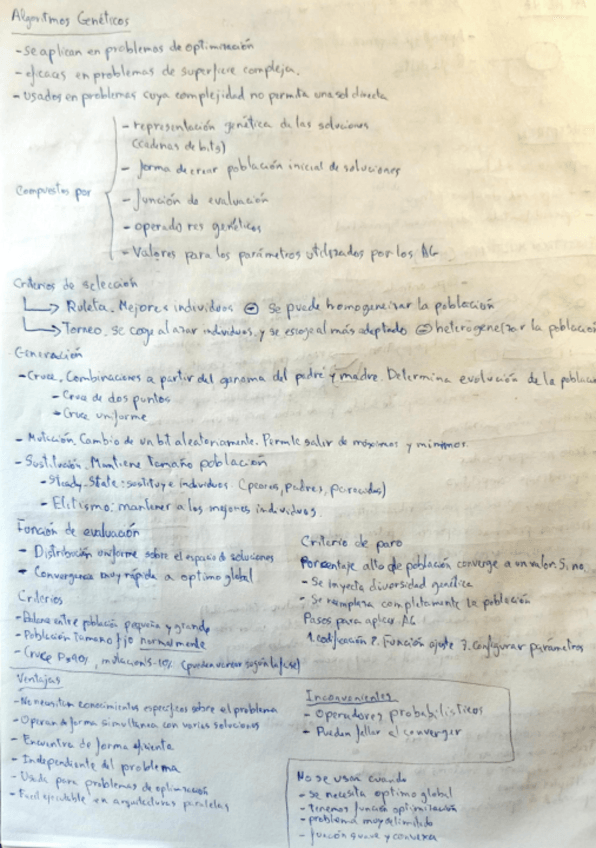 Algoritmos Genéticos
- se aplican en problemas de optimización
- eficaces en problemas de superficie compleja.
- usados en problemas cuya complejidad no permita una sol directa
Compuestos por
- representación genética de las soluciones
(cadenas de bits)
- forma de crear población inicial de soluciones
- función de evaluación
- operadores genéticos
- Valores para los parámetros utilizados por los AG
Criterios de selección
Ruleta. Mejores individuos ⊖ se puede homogeneizar la población
Torneo. se coge al azar individuos, y se escoge al más adaptado heterogeneizar la població
Generación
- Cruce. Combinaciones a partir del genoma del padre y madre. Determina evolución de la poblac
- Cruce de dos puntos
- Cruce uniforme
- Mutación. Cambio de un bit aleatoriamente. Permite salir de máximos y mínimos.
- Sustitución. Mantiene tamaño población
- Steady-State: sostituye individuos (peores, padres, parecidos)
- Elitismo: mantener a los mejores individuos.
Función de evaluación
- Distribución uniforme sobre el espacio de soluciones
- Convergencia muy rápida a optimo global
Criterios
- Balance entre población pequeña y grande
- Población tamaño fijo normalmente
- Cruce 90%, mutación 5-10% (pueden variar según la fase)
Criterio de paro
Porcentaje alto de población converge a un valor. Si no,
- Se inyecta diversidad genética
- Se reemplaza completamente la población
Pasos para aplicar AG
1. codificación 2. Función ajuste 3. Configurar parámetros
Ventajas
- No necesitan conocimientos específicos sobre el problema
- Operan de forma simultanea con varias soluciones
- Encuentra de forma eficiente
- Independiente del problema
- Usada para problemas de optimización
- Facil ejecutable en arquitecturas paralelas
Inconvenientes
- Operadores probabilísticos
- Pueden fallar al converger
No se usan cuando
- se necesita optimo global
- tenemos función optimización
- problema muy delimitado
- función suave y convexa